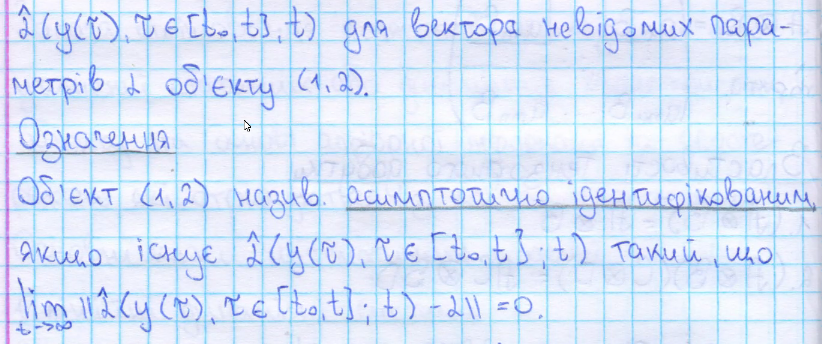 α̂(y(τ), τ ∈ [t₀, t], t) для вектора невідомих пара-
метрів α об'єкту (1,2).
Означення
Об'єкт (1,2) назив. асимптотично ідентифікованим,
якщо існує α̂(y(τ), τ ∈ [t₀, t]; t) такий, що
lim t→∞ ||α̂(y(τ), τ ∈ [t₀, t]; t) - α|| = 0.